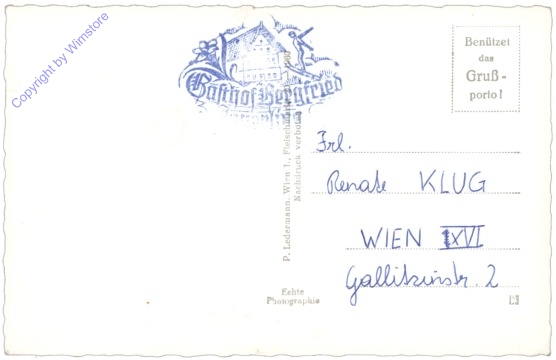 Copyright by Wimstore
Gasthof Bergfried
Benützet
das
Gruß-
porto!
P. Ledermann, Wien I., Fleischmarkt
Nachdruck verboten
Frl.
Renate KLUG
WIEN XVI
Gallitzinstr. 2
Echte
Photographie